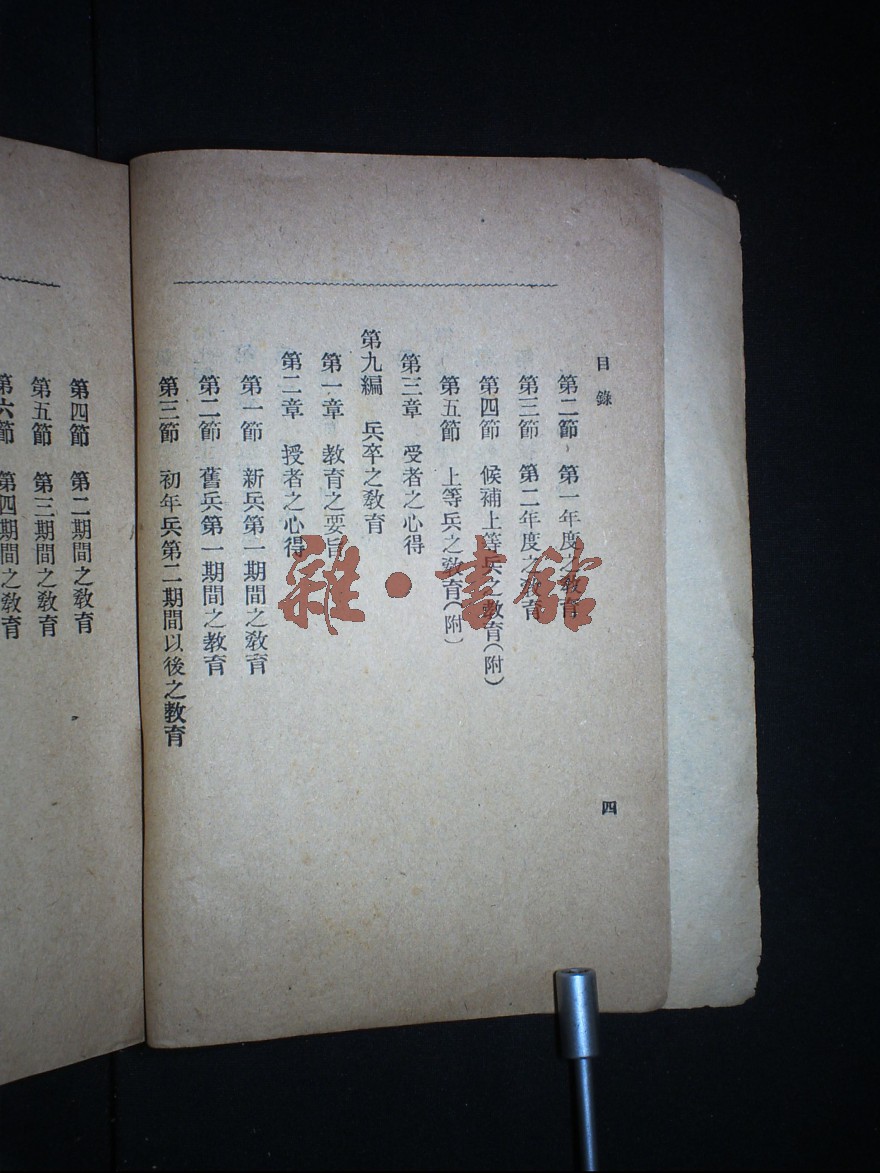 目錄
四
第二節 第一年度之教育
第三節 第二年度之教育
第四節 候補上等兵之教育(附)
第五節 上等兵之教育(附)
第三章 受者之心得
第九編 兵卒之教育
第一章 教育之要旨
第二章 授者之心得
第一節 新兵第一期間之教育
第二節 舊兵第一期間之教育
第三節 初年兵第二期間以後之教育
第四節 第二期間之教育
第五節 第三期間之教育
第六節 第四期間之教育
雜·書館